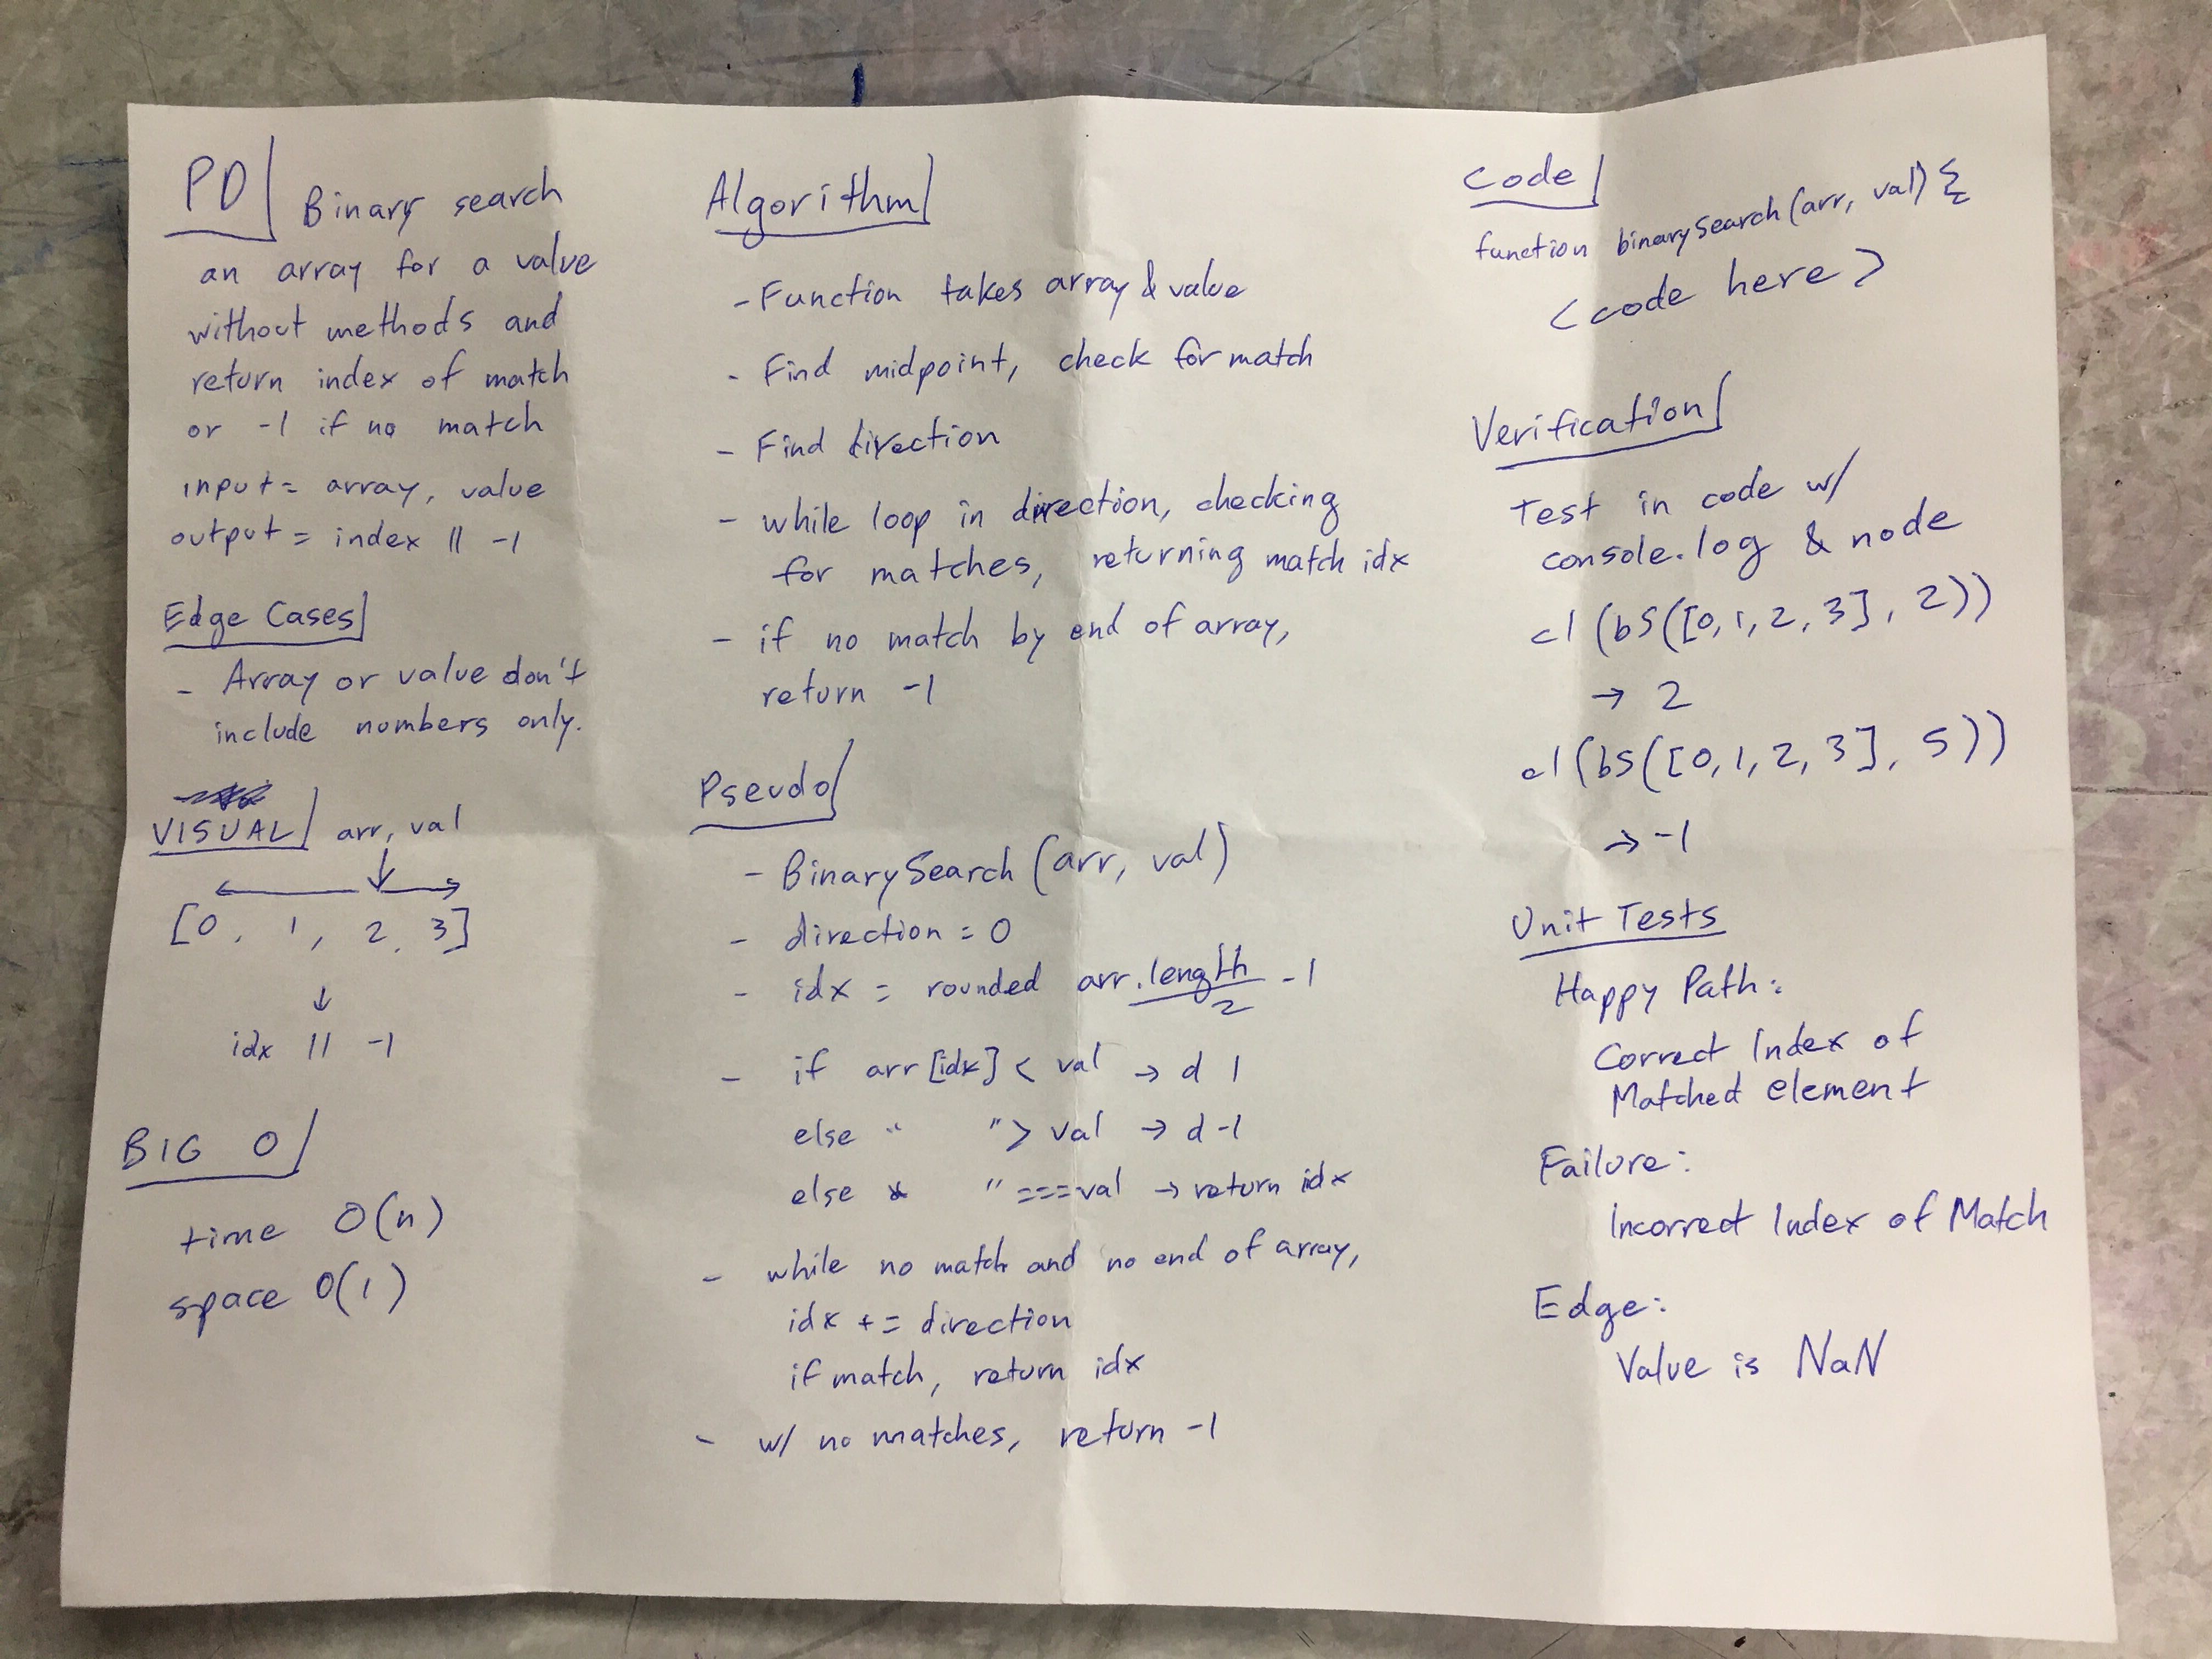 PD
Binary search
an array for a value
without methods and
return index of match
or -1 if no match
input = array, value
output = index || -1
Edge Cases
- Array or value don't
include numbers only.
VISUAL arr, val
[0, 1, 2, 3]
idx || -1
BIG O
time O(n)
space O(1)
Algorithm
- Function takes array & value
- Find midpoint, check for match
- Find direction
- while loop in direction, checking
for matches, returning match idx
- if no match by end of array,
return -1
Pseudo
- BinarySearch (arr, val)
- direction = 0
- idx = rounded arr.length/2 - 1
- if arr[idx] < val → d 1
else " " > val → d -1
else " " === val → return idx
- while no match and no end of array,
idx += direction
if match, return idx
- w/ no matches, return -1
Code
function binarySearch(arr, val) {
<code here>
Verification
Test in code w/
console.log & node
cl(bS([0,1,2,3], 2))
→ 2
cl(bS([0,1,2,3], 5))
→ -1
Unit Tests
Happy Path:
Correct Index of
Matched element
Failure:
Incorrect Index of Match
Edge:
Value is NaN